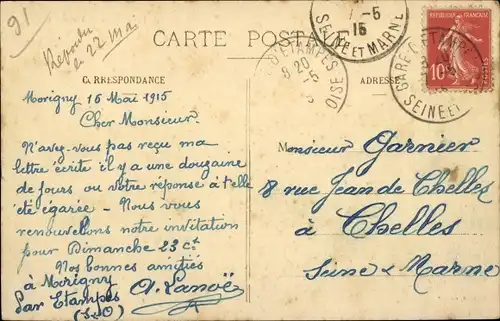 91
Répondu
en 22 Mai
CARTE POSTALE
CORRESPONDANCE
ADRESSE
D'ETAMPES
8 20
5
OISE
7-5
15
SEINE ET MARNE
GARE D'ETAMPES
SEINE ET
10
Morigny 16 Mai 1915
Cher Monsieur.
N'avez-vous pas reçu ma
lettre écrite il y a une douzaine
de jours ou votre réponse a t'elle
été égarée - Nous vous
renouvelons notre invitation
pour Dimanche 23 ct
Nos bonnes amitiés
à Morigny
par Etampes
(S&O)
A. Lanoë
Monsieur Garnier
8 rue Jean de Chelles
à Chelles
Seine & Marne